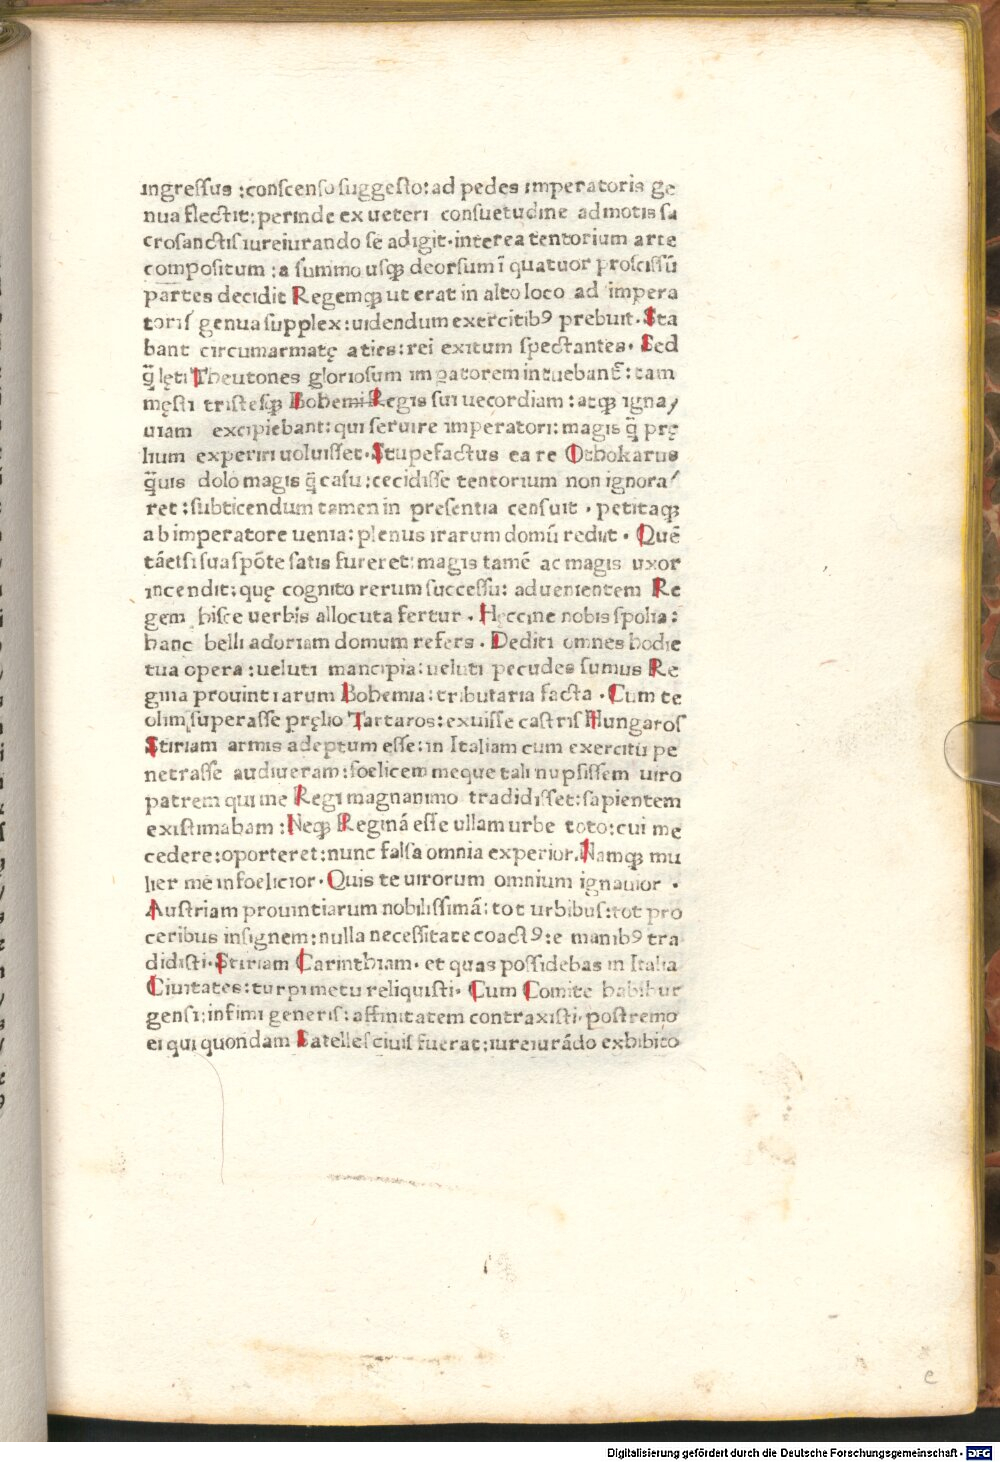 ingreſſus :conſcenſo ſuggeſto: ad pedes imperatoris ge
nua flectit: perinde ex ueteri conſuetudine admotis ſa
croſanctiſ iureiurando ſe adigit. interea tentorium arte
compoſitum : a ſummo uſqꝫ deorſum ī quatuor proſciſſū
partes decidit Regemqꝫ ut erat in alto loco ad impera
toriſ genua ſupplex: uidendum exercitibꝰ prebuit. Sta
bant circumarmatę aties: rei exitum ſpectantes. Sed
q̄ lęti Theutones glorioſum impatorem intuebant̄: tam
męſti triſteſqꝫ Bohemi Regis ſui uecordiam: atqꝫ igna/
uiam excipiebant: qui ſeruire imperatori: magis q̄ prę
lium experiri uoluiſſet. Stupefactus ea re Othokarus
q̄uis dolo magis q̄ caſu: cecidiſſe tentorium non ignora/
ret: ſubticendum tamen in preſentia cenſuit . petitaqꝫ
ab imperatore uenia: plenus irarum domū rediit . Quē
tāetſi sua ſpōte ſatis fureret: magis tamē ac magis uxor
incendit: quę cognito rerum ſucceſſu: aduenientem Re
gem hiſce uerbis allocuta fertur . Heccine nobis ſpolia:
hanc belli adoriam domum refers . Dediti omnes hodie
tua opera: ueluti mancipia: ueluti pecudes ſumus Re
gina prouintiarum Bohemia: tributaria facta . Cum te
olim ſuperaſſe pręlio Tartaros: exuiſſe caſtris Hungaroſ
Stiriam armis adeptum eſſe: in Italiam cum exercitu pe
netraſſe audiueram: foelicem meque tali nupſiſſem uiro
patrem qui me Regi magnanimo tradidiſſet: ſapientem
exiſtimabam : Neqꝫ Reginā eſſe ullam urbe toto: cui me
cedere: oporteret: nunc falſa omnia experior. Namqꝫ mu
lier me infoelicior . Quis te uirorum omnium ignauior .
Auſtriam prouintiarum nobiliſſimā: tot urbibuſ: tot pro
ceribus inſignem: nulla neceſſitate coactꝰ: e manibꝰ tra
didiſti. Stiriam Carinthiam. et quas poſſidebas in Italia
Ciuitates: turpi metu reliquiſti. Cum Comite habibur
genſi: infimi generiſ: affinitatem contraxiſti. poſtremo
ei qui quondam Satelleſ ciuiſ fuerat: iureiurādo exhibito
e
Digitalisierung gefördert durch die Deutsche Forschungsgemeinschaft - DFG